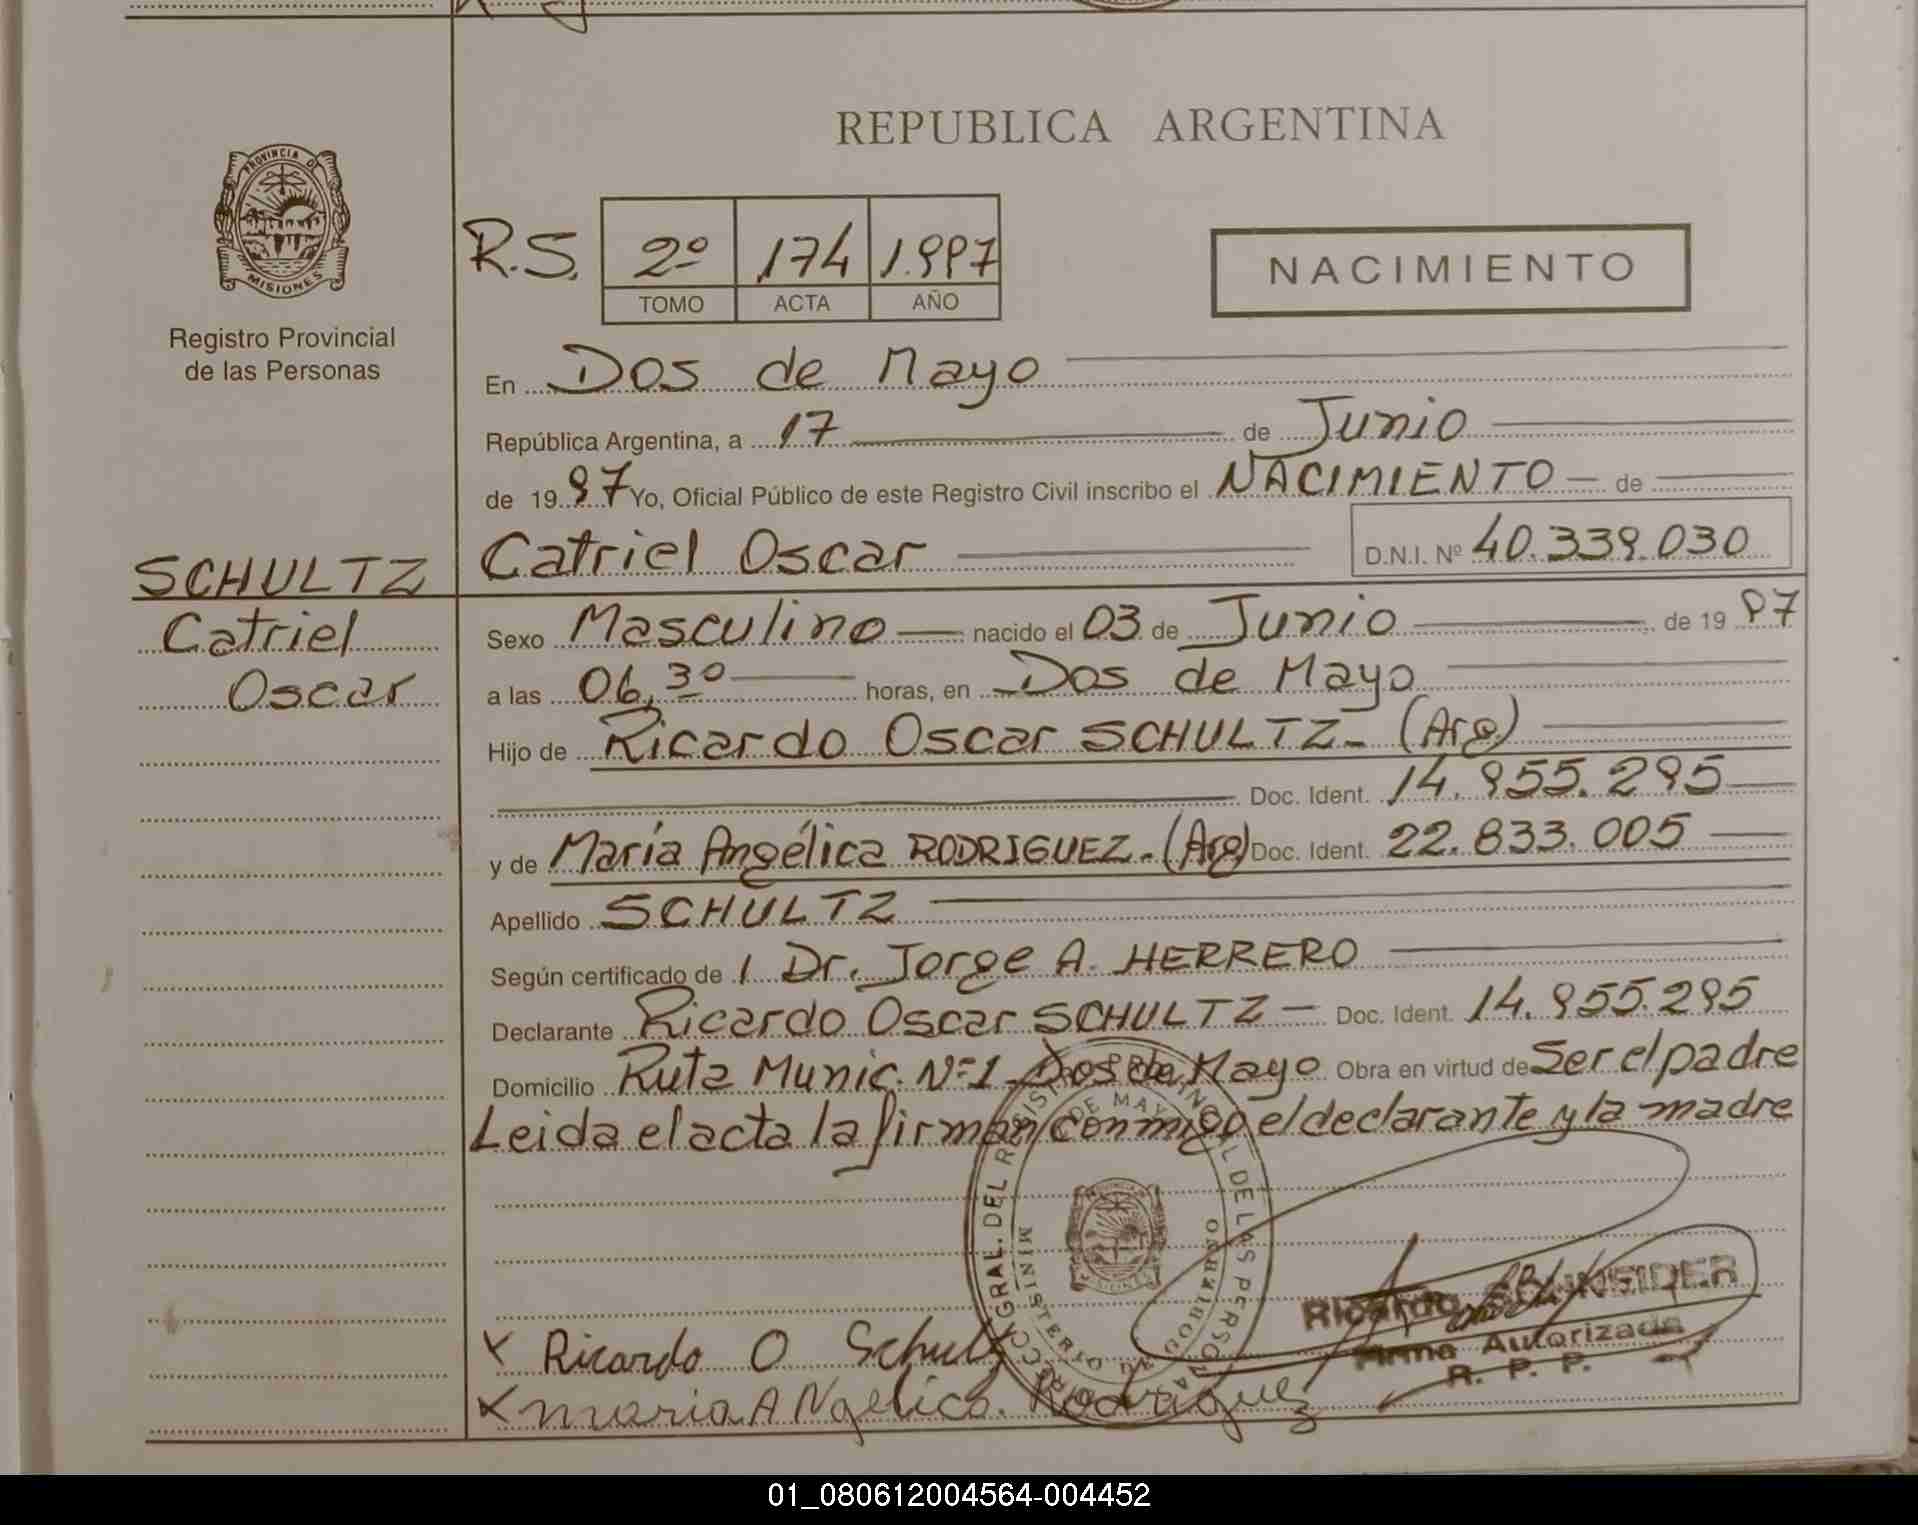 REPUBLICA ARGENTINA
PROVINCIA D
MISIONES
Registro Provincial
de las Personas
R.S. 2º 174 1.997
TOMO ACTA AÑO
NACIMIENTO
En Dos de Mayo
República Argentina, a 17 de Junio
de 1997 Yo, Oficial Público de este Registro Civil inscribo el NACIMIENTO de
Catriel Oscar D.N.I. Nº 40.339.030
SCHULTZ
Catriel
Oscar
Sexo Masculino nacido el 03 de Junio de 1997
a las 06,30 horas, en Dos de Mayo
Hijo de Ricardo Oscar SCHULTZ- (Arg)
Doc. Ident. 14.955.295
y de María Angélica RODRIGUEZ.- (Arg) Doc. Ident. 22.833.005
Apellido SCHULTZ
Según certificado de / Dr. Jorge A. HERRERO
Declarante Ricardo Oscar SCHULTZ - Doc. Ident. 14.955.295
Domicilio Ruta Munic. Nº 1 Dos de Mayo Obra en virtud de Ser el padre
Leida el acta la firman conmigo el declarante y la madre
GRAL. DEL DE LAS PERSONAS
DE MAYO
MINISTERIO DE GOBIERNO
Ricardo
Firma Autorizada
R. P. P.
x Ricardo O Schultz
x maria ANgelica. Rodriguez
01_080612004564-004452